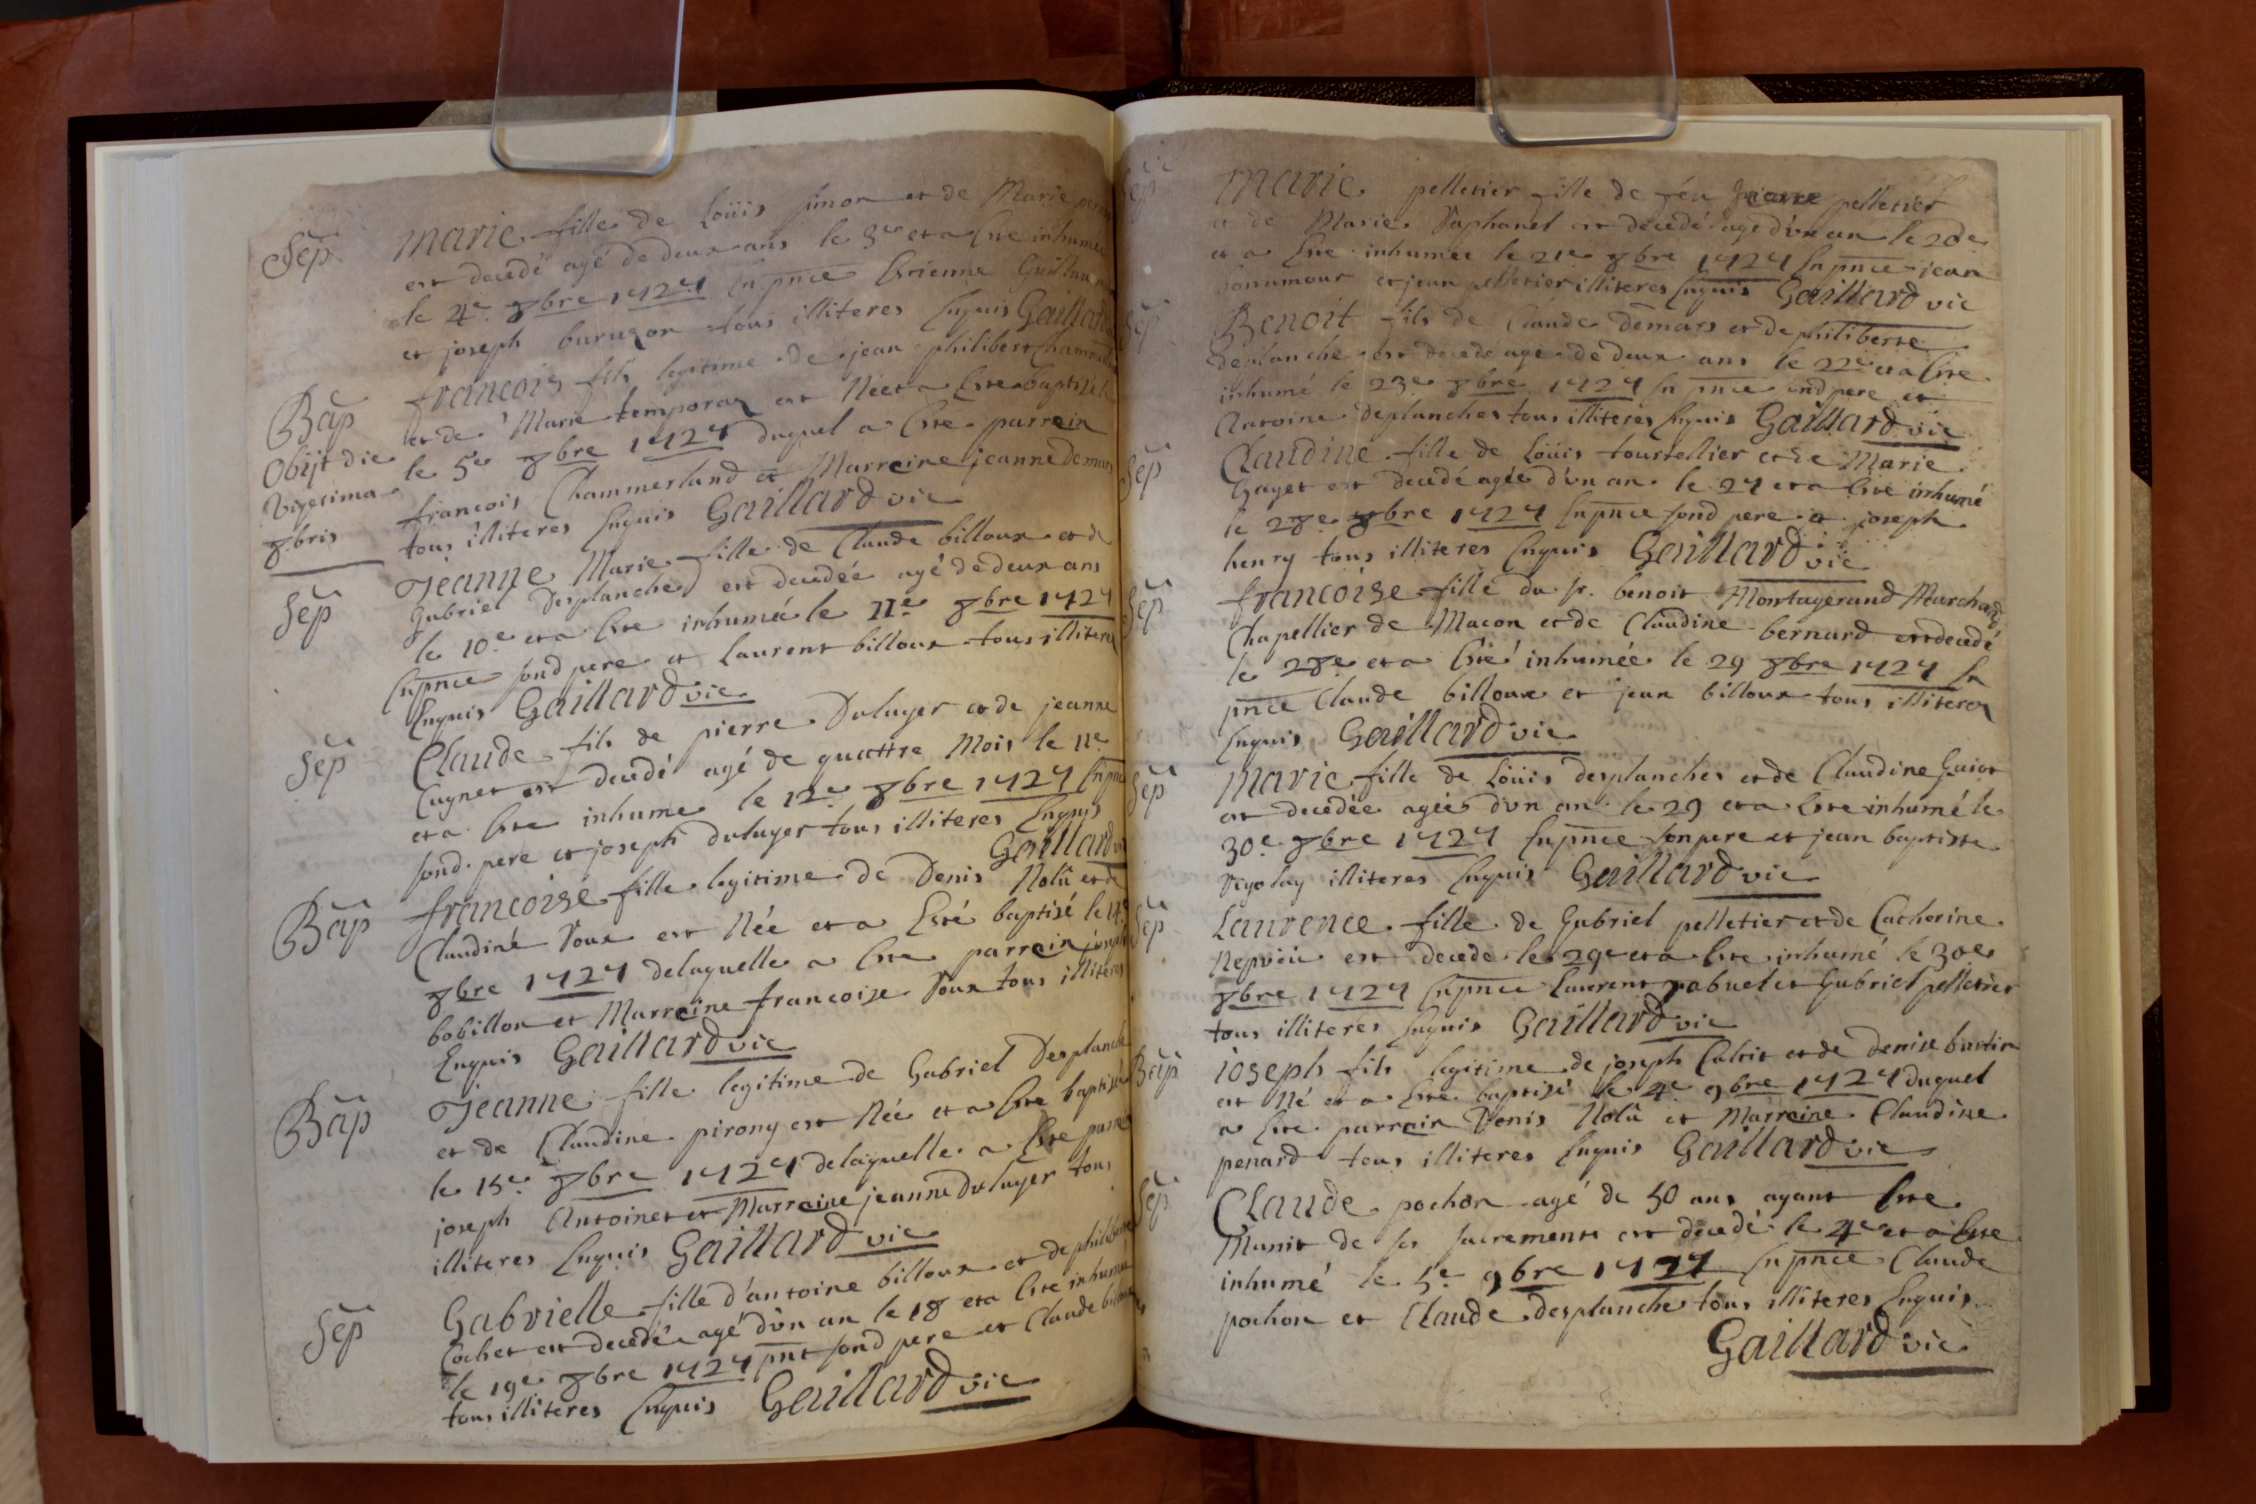 Sep
Marie fille de Loüis simon et de Marie
est decedé agé de deux ans le 3e et a Este inhumée
le 4e 8bre 1724 En pnce Estienne Guillau
et joseph buruzon tous illiteres Enquis Gaillard
Bap
francois fils legitime de jean philibert Chamerla
et de Marie temporaz est Né et a Este baptisé
le 5e 8bre 1724 duquel a Este parrein
francois Chammerland et Marreine jeanne demars
tous illiteres Enquis Gaillard vic
Obijt die
Vigesima
8bris
Sep
Jeanne Marie fille de Claude billoux et de
Gabriel Desplanche est decedée agé de deux ans
le 10e et a Este inhumée le 11e 8bre 1724
En pnce sond pere et Laurent billoux tous illiteres
Enquis Gaillard vic
Sep
Claude fils de pierre Duluyer et de jeanne
Cugnet est decedé agé de quattre Mois le 11e
et a Este inhume le 12e 8bre 1724 En pnce
sond pere et joseph duluyer tous illiteres Enquis
Gaillard vic
Bap
francoise fille legitime de Denis Nolû et de
Claudine Voux est Née et a Esté baptisé le 14e
8bre 1724 delaquelle a Este parrein joseph
bobillon et Marreine francoise Voux tous illiteres
Enquis Gaillard vic
Bap
Jeanne fille legitime de Gabriel Desplanche
et de Claudine pirony est Née et a Este baptisée
le 15e 8bre 1724 delaquelle a Este parre
joseph Antoinet et Marreine jeanne Duluyer tous
illiteres Enquis Gaillard vic
Sep
Gabrielle fille d'antoine billoux et de philiberte
Cochet est decedé agé d'vn an le 18 et a Este inhumée
le 19e 8bre 1724 pnt sond pere et Claude billoux
tous illiteres Enquis Gaillard vic
Sep
Marie pelletier fille de feu pierre pelletier
et de Marie Vaphanel est decedé agé d'vn an le 20e
et a Este inhumée le 21e 8bre 1724 En pnce jean
bonamour et jean pelletier illiteres Enquis Gaillard vic
Sep
Benoit fils de Claude demars et de philiberte
deplanche est decedé agé de deux ans le 22e et a Este
inhumé le 23e 8bre 1724 En pnce sond pere et
Antoine deplanches tous illiteres Enquis Gaillard vic
Sep
Claudine fille de Loüis tourtellier et de Marie
Gayet est decedé agée d'vn an le 27 et a Este inhumé
le 28e 8bre 1724 En pnce sond pere et joseph
henry tous illiteres Enquis Gaillard vic
Sep
francoise fille du sr. benoit Montagerand Marchand
Chapellier de Macon et de Claudine bernard est decedé
le 28e et a Esté inhumée le 29 8bre 1724 En
pnce Claude billoux et jean billoux tous illiteres
Enquis Gaillard vic
Sep
Marie fille de Loüis desplanches et de Claudine Guiot
est decedée agée d'vn an le 29 et a Este inhumé le
30e 8bre 1724 En pnce son pere et jean baptiste
Vigolay illiteres Enquis Gaillard vic
Sep
Laurence fille de Gabriel pelletier et de Catherine
Nepvêu est decede le 29e et a Este inhumé le 30e
8bre 1724 En pnce Laurent rabuel et Gabriel pelletier
tous illiteres Enquis Gaillard vic
Bap
joseph fils legitime de joseph Calcit et de denise burtin
est Né et a Este baptisé le 4e 9bre 1724 duquel
a Este parrain Denis Nolû et Marreine Claudine
penard tous illiteres Enquis Gaillard vic
Sep
Claude pochon agé de 50 ans ayant Este
Munit de ses sacrements est décedé le 4e et a Este
inhumé le 5e 9bre 1724 En pnce Claude
pochon et Claude desplanche tous illiteres Enquis
Gaillard vic